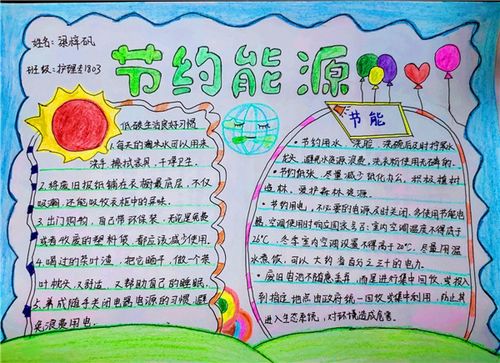 姓名:梁梓矾
班级:护理专1803
节约能源
低碳生活良好习惯
1.每天的淘米水可以用来
洗手擦拭家具,干净卫生。
2.将废旧报纸铺在衣橱最底层,不仅
吸潮,还能吸收衣柜中的异味。
3.出门购物,自己带环保袋,无论是免费
或者收费的塑料袋都应该减少使用。
4.喝过的茶叶渣,把它晒干,做一个茶
叶枕头,又舒适,又帮助自己的睡眠。
5.养成随手关闭电器电源的习惯,避
免浪费用电。
节能
节约用水,洗脸,洗碗后及时拧紧水
龙头,避免水资源浪费,
节约纸张,尽量减少纸化办公,积极植树
造林,爱护森林资源。
节约用电,不必要的电源及时关闭,多使用节能电
器,空调使用时响应国家号召,室内空调温度不得高于
26℃,冬季室内空调设置不得高于20℃,尽量用温
水煮饭,可以大约省百分之三十的电力。
废旧电池不随意丢弃,而是进行集中回收或投入
到指定地点由政府统一回收或集中利用,防止其
进入生态系统,对环境造成危害。